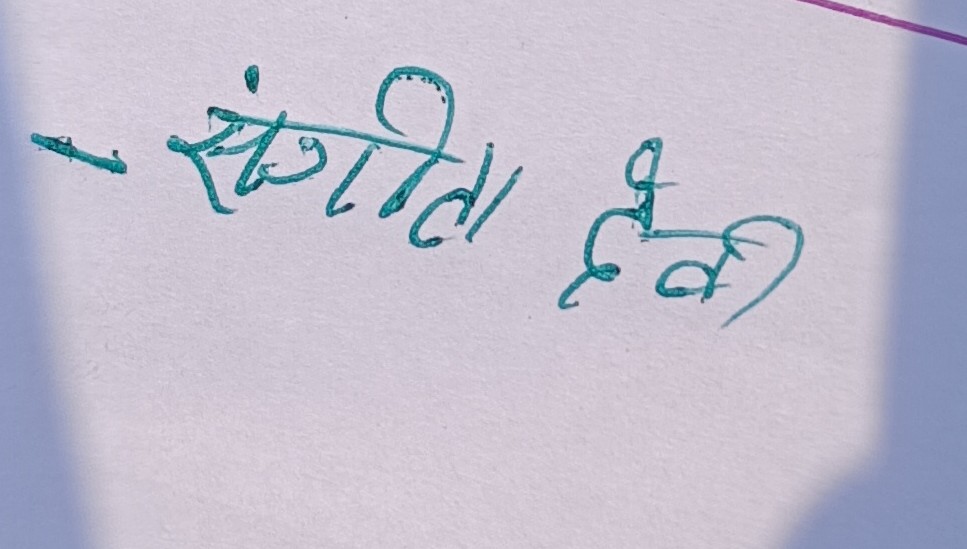 - संगीता देवी